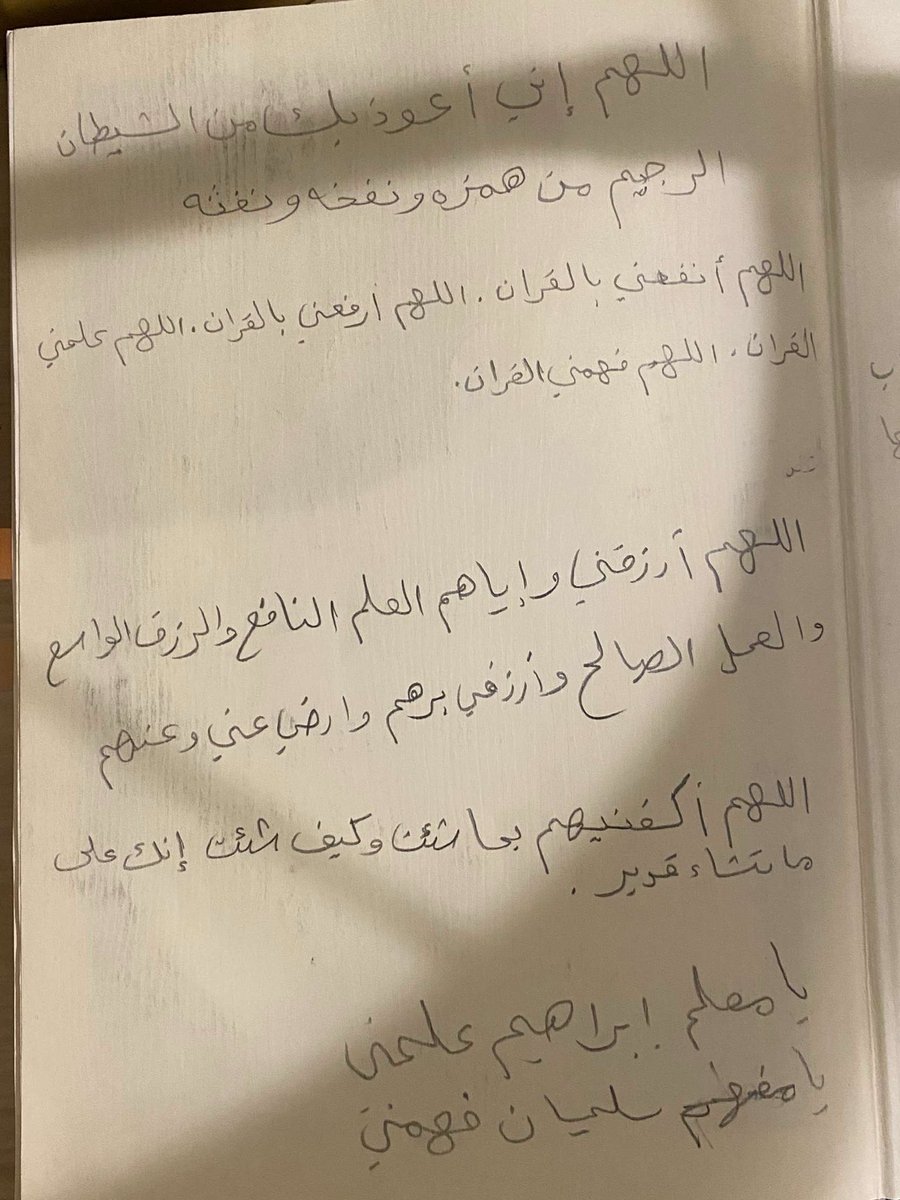 اللهم إني أعوذ بك من الشيطان
الرجيم من همزه ونفخه ونفثه
اللهم أنفعني بالقران . اللهم أرفعني بالقران . اللهم علمني
القران . اللهم فهمني القران .
اللهم أرزقني وإياهم العلم النافع والرزق الواسع
والعمل الصالح وأرزقني برهم وارضي عني وعنهم
اللهم أكفنيهم بما شئت وكيف شئت إنك على
ما تشاء قدير .
يا معلم إبراهيم علمني
يا مفهم سليمان فهمني